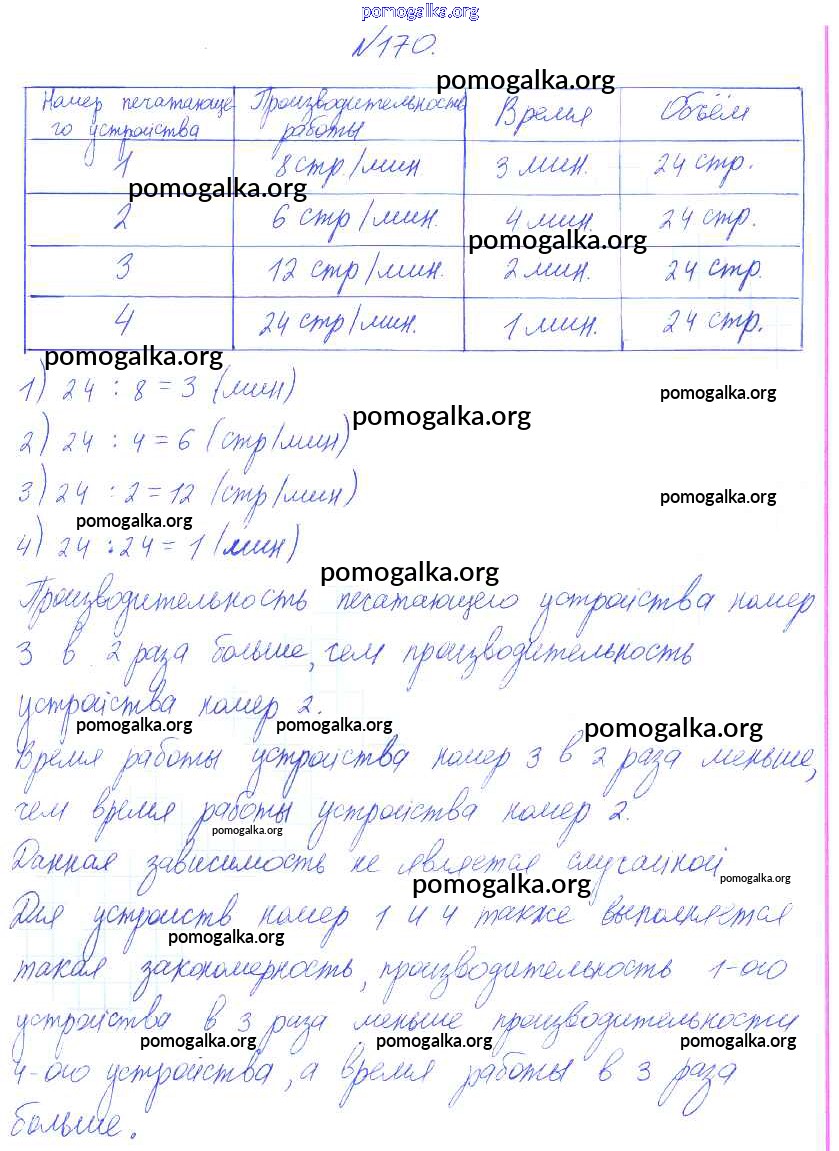 pomogalka.org
№170.
pomogalka.org
Номер печатающе- Производительность Время Объём
го устройства работы
1 8 стр./мин. 3 мин. 24 стр.
pomogalka.org
2 6 стр/мин. 4 мин. 24 стр.
pomogalka.org
3 12 стр/мин. 2 мин. 24 стр.
4 24 стр/мин. 1 мин. 24 стр.
pomogalka.org
1) 24 : 8 = 3 (мин)
pomogalka.org
pomogalka.org
2) 24 : 4 = 6 (стр/мин)
3) 24 : 2 = 12 (стр/мин)
pomogalka.org
pomogalka.org
4) 24 : 24 = 1 (мин)
pomogalka.org
Производительность печатающего устройства номер
3 в 2 раза больше, чем производительность
устройства номер 2.
pomogalka.org pomogalka.org pomogalka.org
Время работы устройства номер 3 в 2 раза меньше,
чем время работы устройства номер 2.
pomogalka.org
Данная зависимость не является случайной
pomogalka.org pomogalka.org
Для устройств номер 1 и 4 также выполняется
pomogalka.org
такая закономерность, производительность 1-ого
устройства в 3 раза меньше производительности
pomogalka.org pomogalka.org pomogalka.org
4-ого устройства, а время работы в 3 раза
больше.